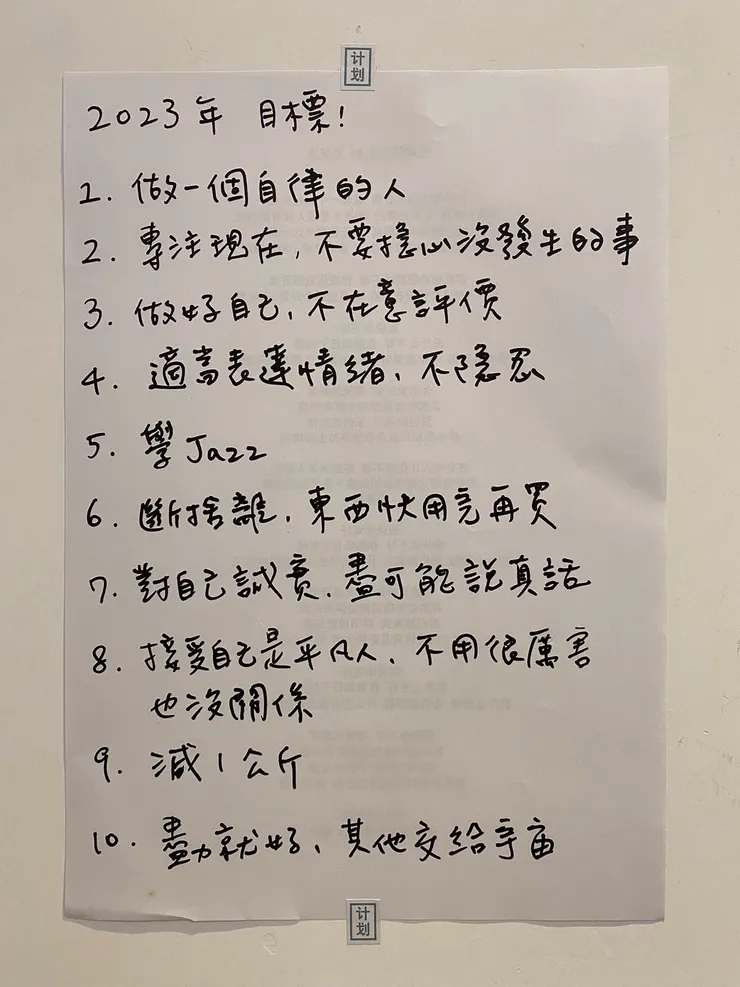 计划
2023年 目標!
1. 做一個自律的人
2. 專注現在，不要擔心沒發生的事
3. 做好自己，不在意評價
4. 適當表達情緒，不隱忍
5. 學Jazz
6. 斷捨離，東西快用完再買
7. 對自己誠實，盡可能說真話
8. 接受自己是平凡人，不用很厲害
也沒關係
9. 減1公斤
10. 盡力就好，其他交給宇宙
计划